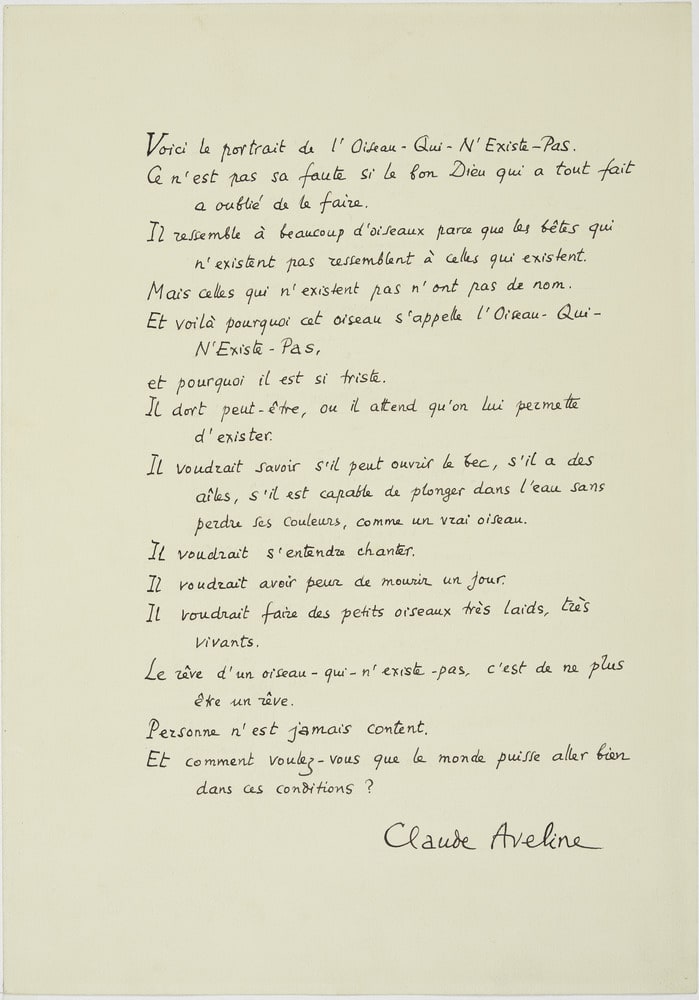 Voici le portrait de l'Oiseau-Qui-N'Existe-Pas.
Ce n'est pas sa faute si le bon Dieu qui a tout fait
a oublié de le faire.
Il ressemble à beaucoup d'oiseaux parce que les bêtes qui
n'existent pas ressemblent à celles qui existent.
Mais celles qui n'existent pas n'ont pas de nom.
Et voilà pourquoi cet oiseau s'appelle l'Oiseau-Qui-
N'Existe-Pas,
et pourquoi il est si triste.
Il dort peut-être, ou il attend qu'on lui permette
d'exister.
Il voudrait savoir s'il peut ouvrir le bec, s'il a des
aîles, s'il est capable de plonger dans l'eau sans
perdre ses couleurs, comme un vrai oiseau.
Il voudrait s'entendre chanter.
Il voudrait avoir peur de mourir un jour.
Il voudrait faire des petits oiseaux très laids, très
vivants.
Le rêve d'un oiseau-qui-n'existe-pas, c'est de ne plus
être un rêve.
Personne n'est jamais content.
Et comment voulez-vous que le monde puisse aller bien
dans ces conditions ?
Claude Aveline